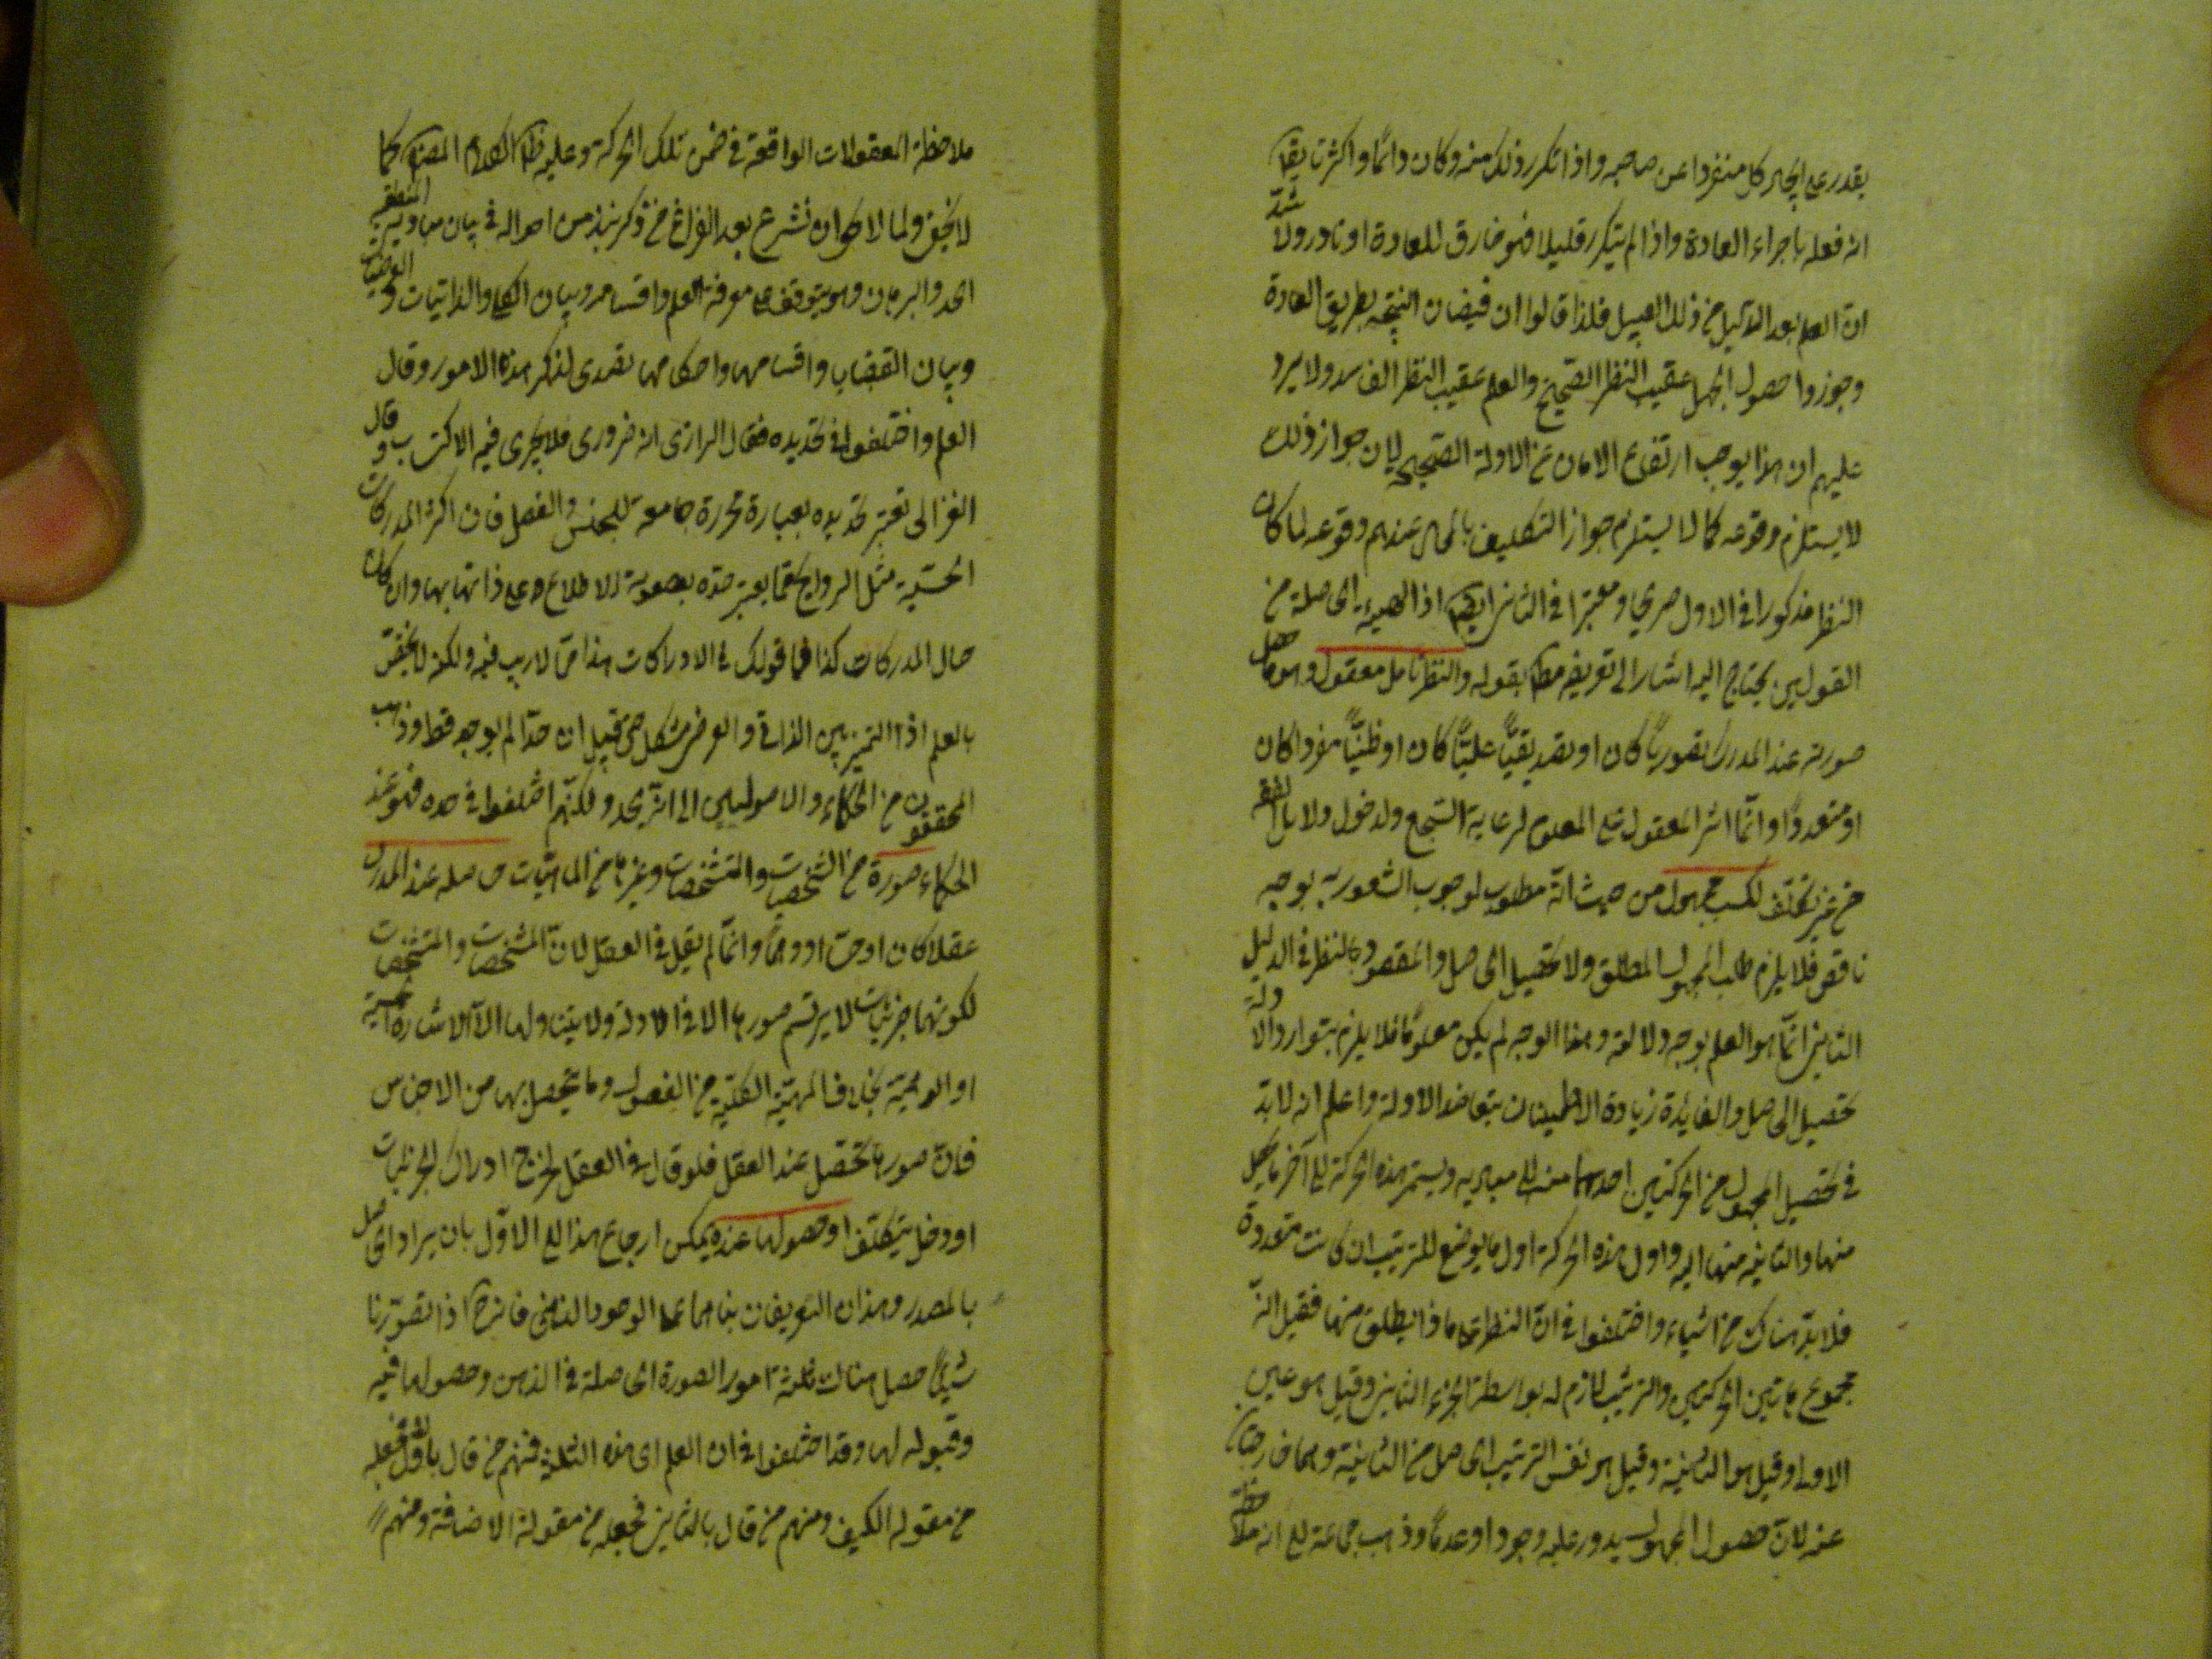 يقدر على ايجاد كل منفردا عن صاحبه واذا تكرر ذلك منه وكان دائما او اكثريا يقال
انه فعله باجراء العادة واذا لم يتكرر قليلا فهو خارق للعادة او نادر ولا شك
ان العلم بعد الدليل من ذلك القبيل فلذا قالوا ان فيضان النتيجة بطريق العادة
وجوزوا حصول الجهل عقيب النظر الصحيح والعلم عقيب النظر الفاسد ولا يرد
عليهم ان هذا يوجب ارتفاع الامان عن الادلة الصحيحة لان جواز ذلك
لا يستلزم وقوعه كما لا يستلزم جواز التكليف بالمحال عندهم وقوعه لما كان
النظر مذكورا في الاول صريحا ومعتبرا في الثاني ايضا اذ الهيئة الحاصلة من
القولين يحتاج اليه اشار الى تعريفه مطلقا بقوله والنظر تامل معقول وهو ما حصل
صورته عند المدرك تصوريا كان او تصديقيا علميا كان او ظنيا مفردا كان
او متعددا وانما اثر المعقول على المعلوم لرعاية السجع ولدخول ولا بالقوة
من غير تكلف لكسب مجهول من حيث انه مطلوب لوجوب الشعور به بوجه
ناقص فلا يلزم طلب المجهول المطلق ولا تحصيل الحاصل والمقصود بالنظر في الدليل
الثاني انما هو العلم بوجه دلالته وهذا الوجه لم يكن معلوما فلا يلزم بتوارد الادلة
تحصيل الحاصل والفائدة زيادة الاطمينان بتعاضد الادلة واعلم انه لا بد
في تحصيل المجهول من الحركتين احديهما منه الى مباديه ويستمر هذه الحركة الى آخر ما يحصل
منها والثانية منها اليه واول هذه الحركة اول ما يوضع للترتيب ان كانت متعددة
فلا بد هناك من اشياء واختلفوا في ان النظر على ماذا يطلق منها فقيل انه
مجموع هاتين الحركتين والترتيب لازم له بواسطة الجزء الثاني وقيل هو عين
الاولى وقيل هو الثانية وقيل هو نفس الترتيب الحاصل من الثانية وهما خارجتان
عنه لان حصول المجهول يدور عليه وجودا وعدما وذهب جماعة الى انه ملاحظة
ملاحظة المعقولات الواقعة في ضمن تلك الحركة وعليه ظاهر كلام المصنف كما
لا يخفى ولما اراد ان يشرع بعد الفراغ من ذكر نبذ من احواله في بيان مباديه المنطقية
الحد والبرهان وهو يتوقف على معرفة العلم واقسامه وبيان الكلي والذاتيات والعرضيات
وبيان القضايا واقسامها واحكامها تصدى لذكر هذه الامور وقال
العلم واختلفوا في تحديده فقال الرازي انه ضروري فلا يجري فيه الاكتساب وقال
الغزالي تعسر تحديده بعبارة محررة جامعة للجنس والفصل فان اكثر المدركات
الحسية مثل الروايح كما يعسر حده بصعوبة الاطلاع على ذاتياتها وان كان
حال المدركات كذا فما قولك في الادراكات هذا مما لا ريب فيه ولكنه لا يختص
بالعلم اذ التمييز بين الذاتي والعرضي مشكل حتى قيل ان حدا لم يوجد قط وذهب
المحققون من الحكماء والاصوليين الى انه يحد ولكنهم اختلفوا في حده فهو عند
الحكماء صورة من الشخصيات والمتشخصات وغيرها من الماهيات حاصلة عند المدرك
عقلا كان او حسا او وهما وانما لم يقل في العقل لان المشخصات والمتشخصات
لكونها جزئيات لا يرتسم صورها الا في الآلة ولا يتناولها الا الاشارة الحسية
او الوهمية بخلاف الماهية الكلية من الفصول وما يتحصل بها من الاجناس
فان صورها تحصل عند العقل فلو قال في العقل لخرج ادراك الجزئيات
او دخل بتكلف او حصولها عنده يمكن ارجاع هذا الى الاول بان يراد الحاصل
بالمصدر وهذان التعريفان بناهما على الوجود الذهني فانه اذا تصورنا
شيئا حصل هناك ثلاثة امور الصورة الحاصلة في الذهن وحصولها فيه
وقبوله لها وقد اختلفوا في ان العلم اي هذه الثلاثة فمنهم من قال بالاول فجعله
من مقولة الكيف ومنهم من قال بالثاني فجعله من مقولة الاضافة ومنهم